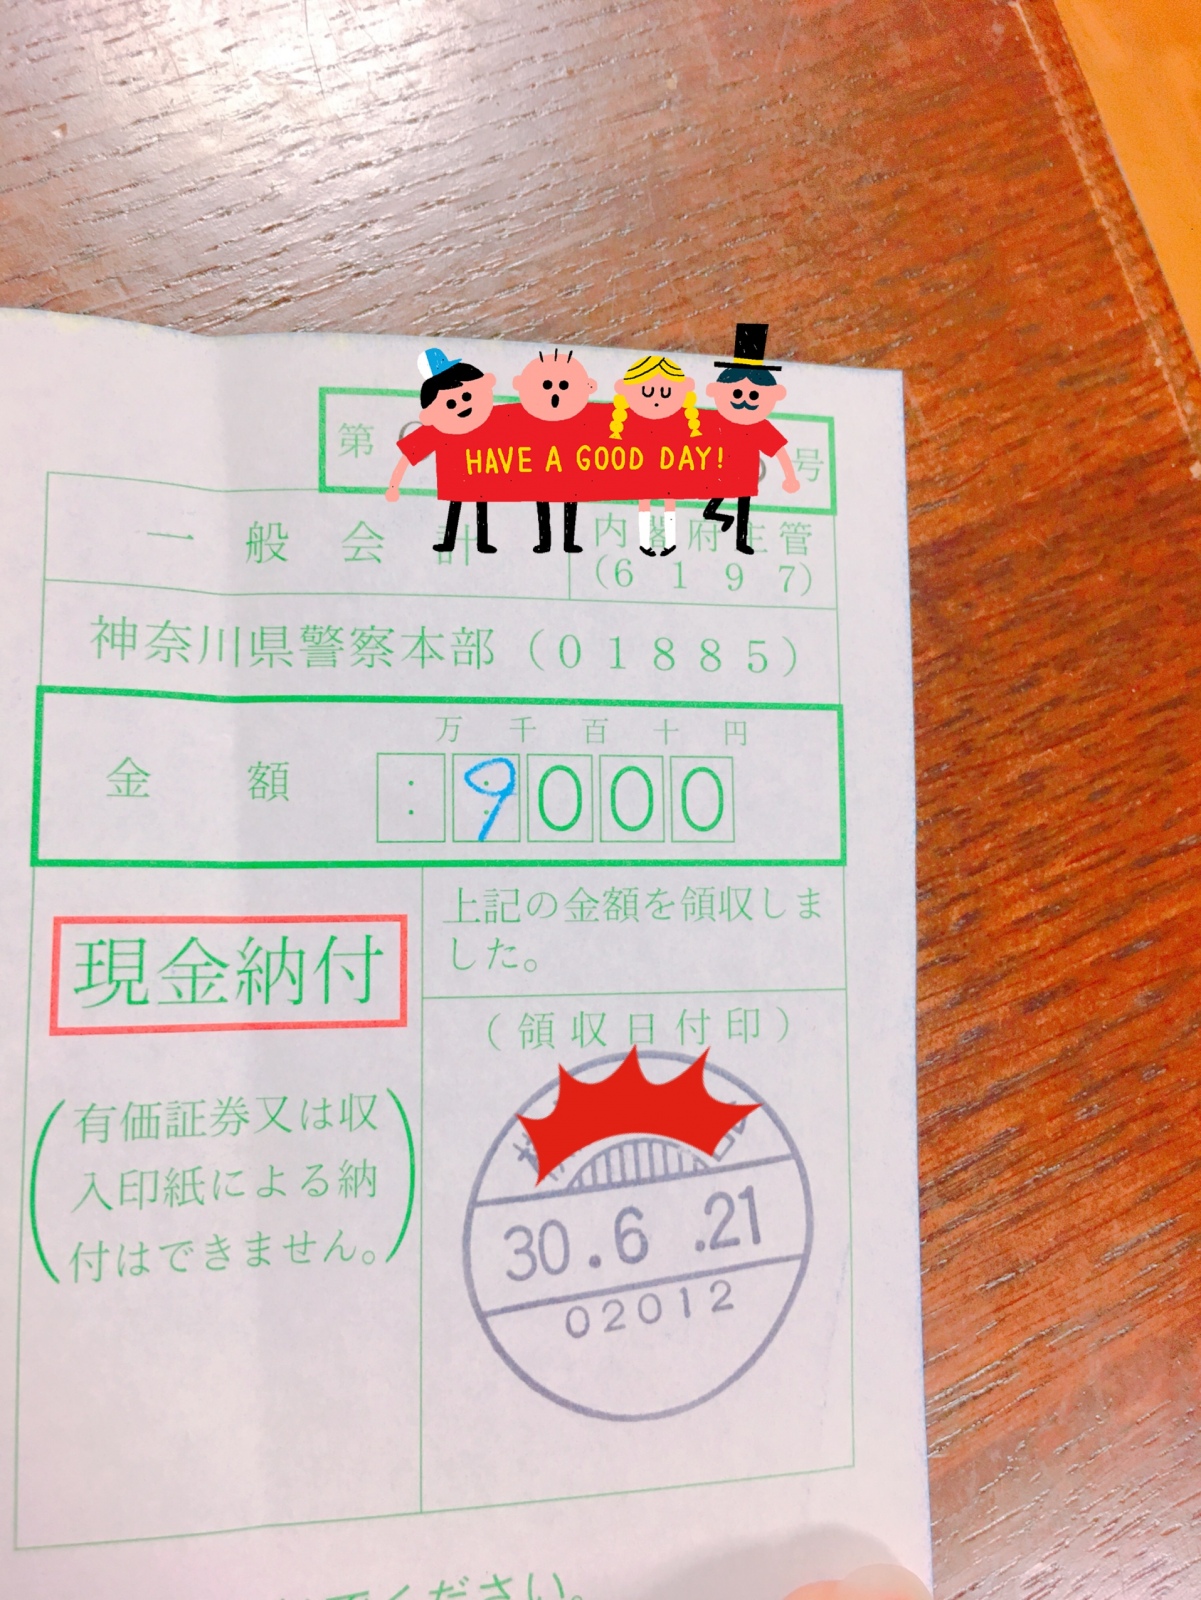 第
号
HAVE A GOOD DAY!
一般会計
内閣府主管
(6197)
神奈川県警察本部(01885)
万千百十円
金額
9000
上記の金額を領収しま
した。
現金納付
(領収日付印)
有価証券又は収
入印紙による納
付はできません。
30.6.21
02012
ください。